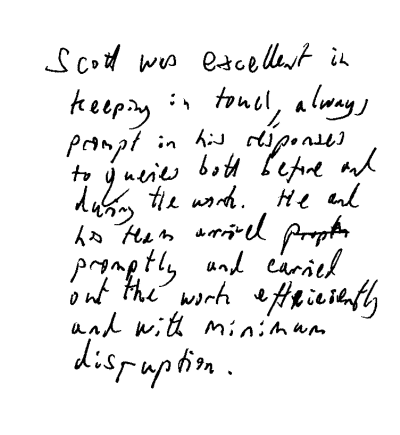 Scott was excellent in
keeping in touch, always
prompt in his responses
to queries both before and
during the work. He and
his team arrived
promptly and carried
out the work efficiently
and with minimum
disruption.